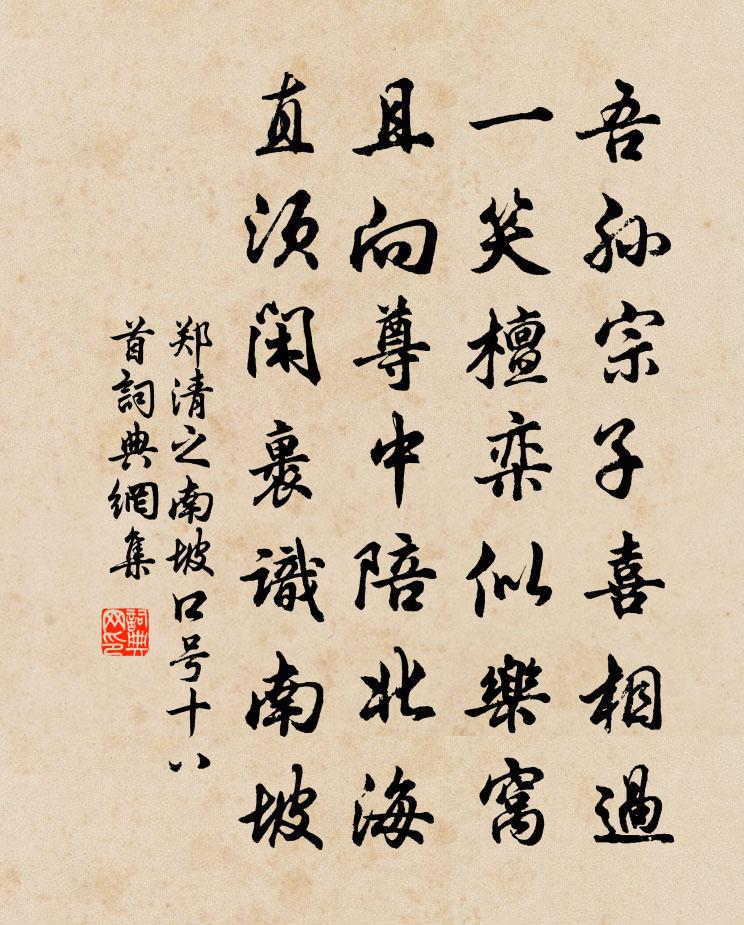 吾孙宗子喜相過
一笑檀栾似樂窩
且向尊中陪北海
直须閑裏識南坡
郑清之南坡口号十八
首詞典網集
詞典
网印